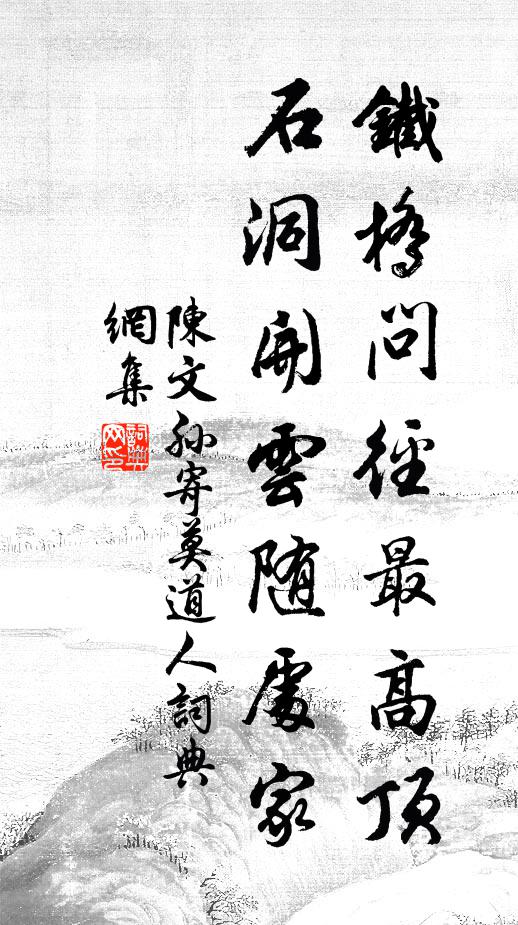 鐵橋問徑最高頂
石洞開雲隨處家
陳文孫寄莫道人詞典
網集